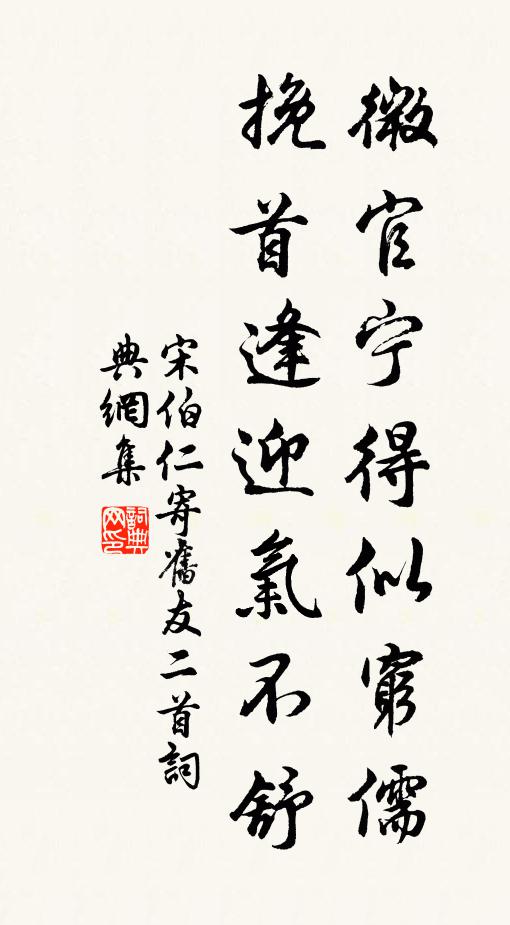 微官宁得似窮儒
挽首逢迎氣不舒
宋伯仁寄舊友二首詞
典網集
詞典网印